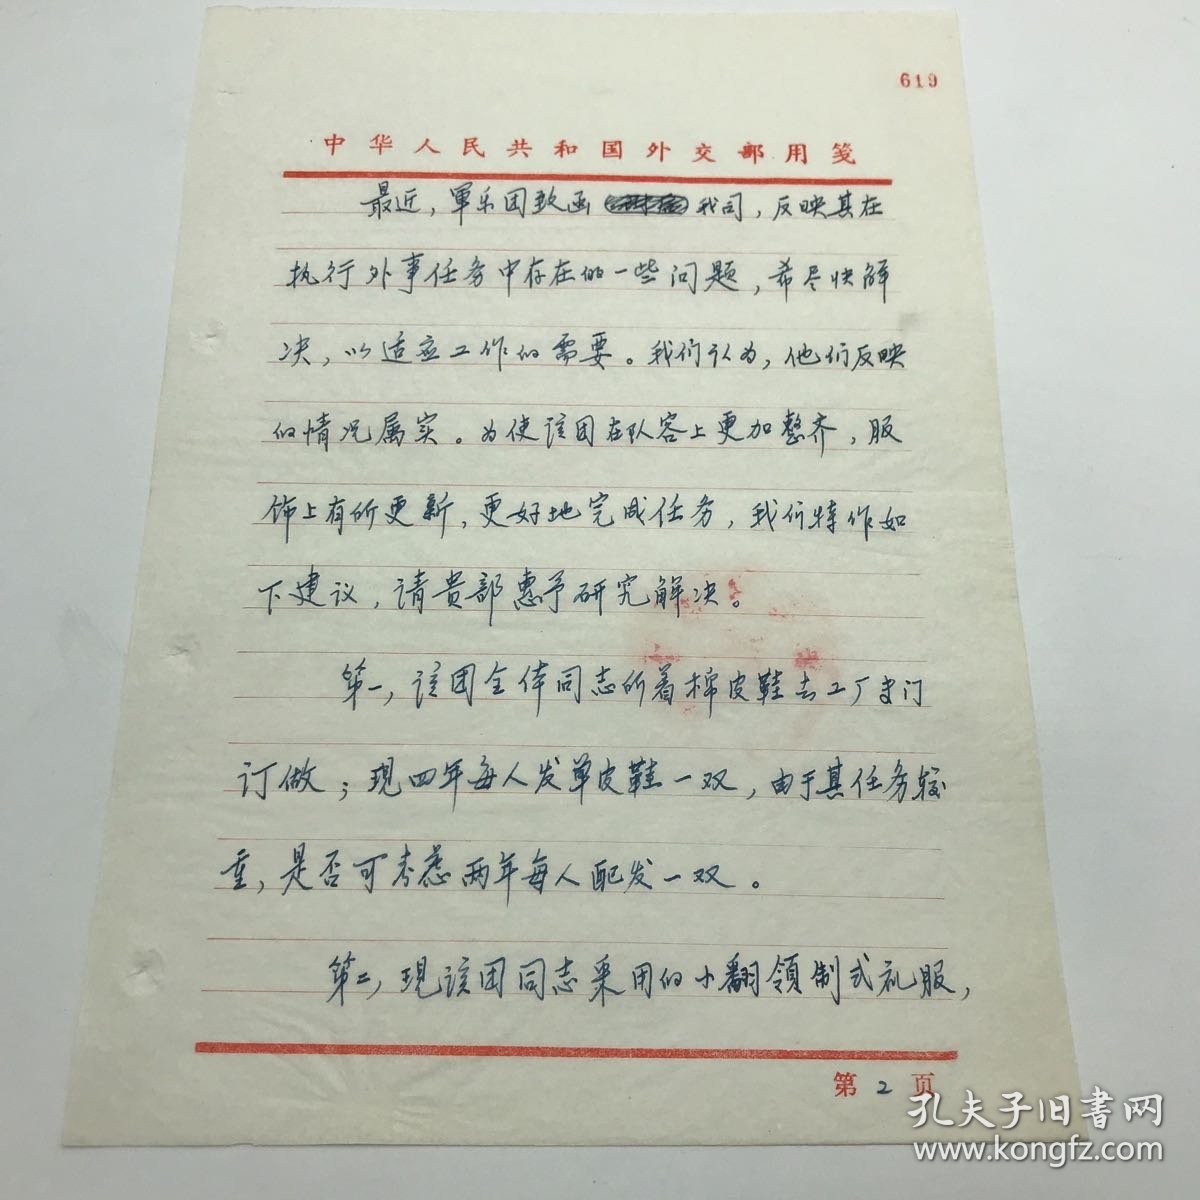 619
中华人民共和国外交部用笺
最近，軍乐团致函我司，反映其在
执行外事任务中存在的一些问题，希尽快解
决，以适应工作的需要。我们认为，他们反映
的情况属实。为使该团在队容上更加整齐，服
饰上有所更新，更好地完成任务，我们特作如
下建议，请贵部惠予研究解决。
第一，该团全体同志所着棉皮鞋去工厂专门
订做；现四年每人发单皮鞋一双，由于其任务较
重，是否可考虑两年每人配发一双。
第二，现该团同志采用的小翻領制式礼服，
第2页
孔夫子旧書网
www.kongfz.com